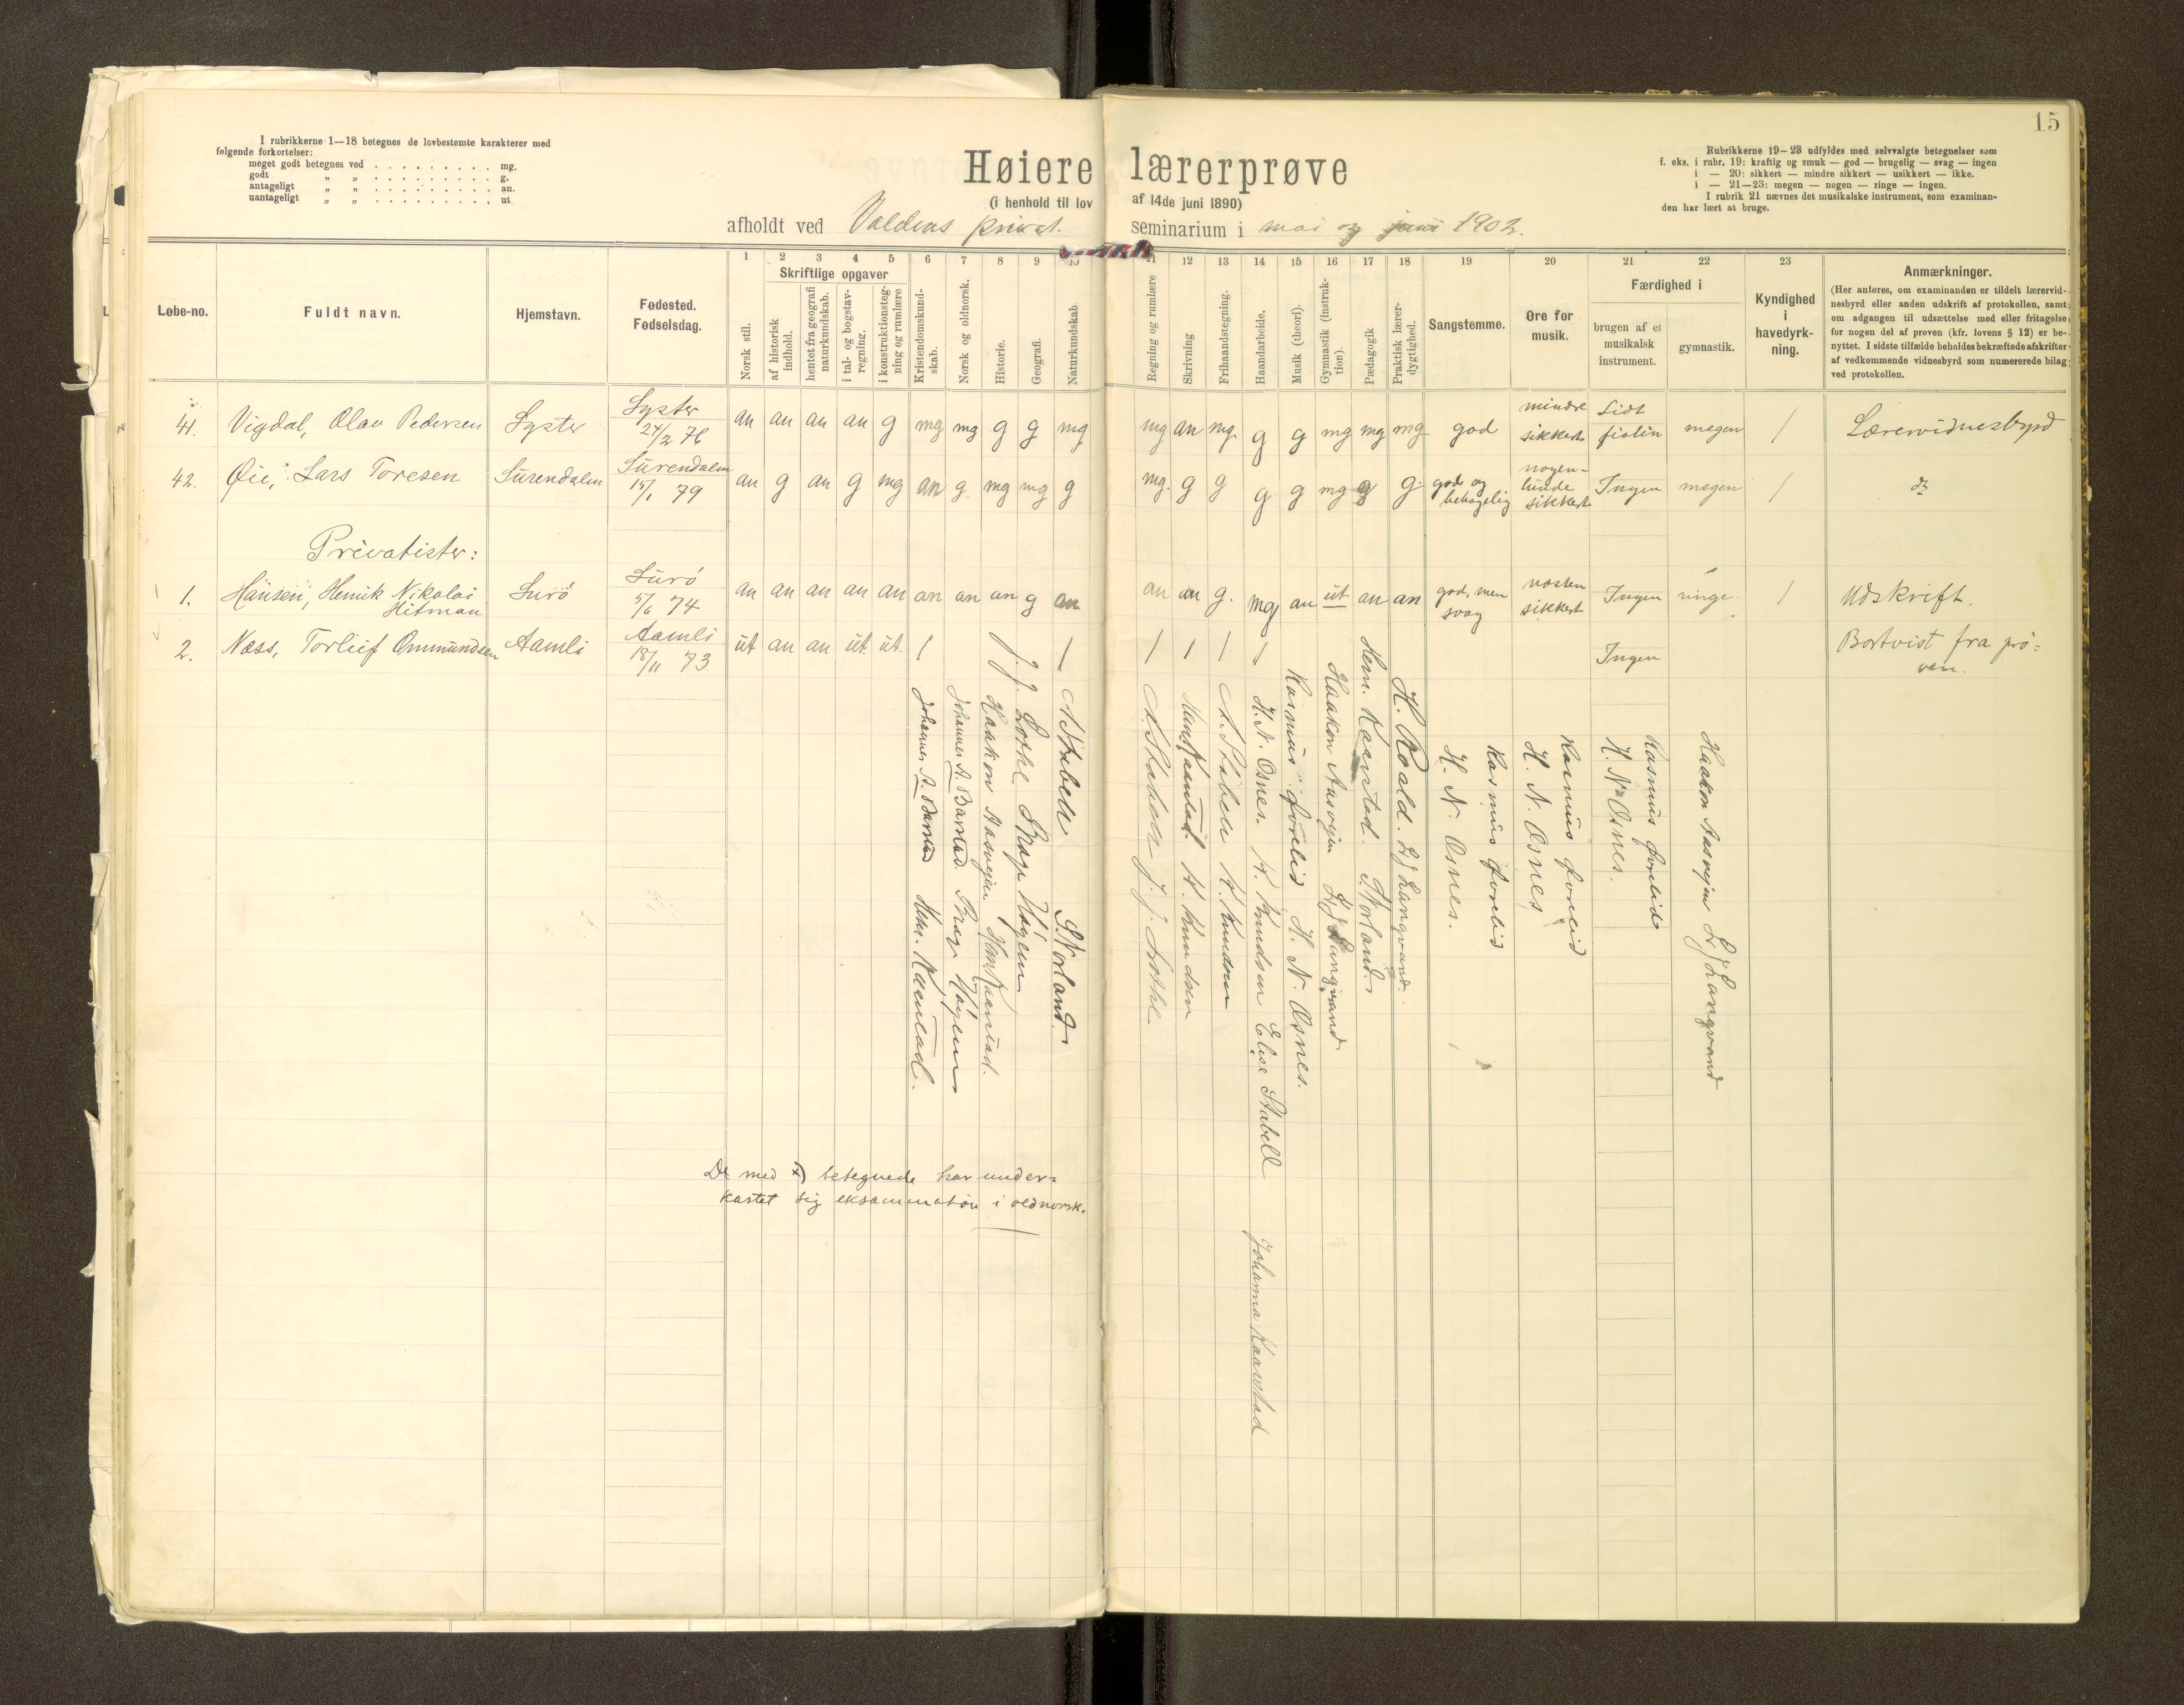 15
I rubrikkerne 1—18 betegnes de lovbestemte karakterer med
følgende forkortelser:
meget godt betegnes ved . . . . . . . . . . mg.
godt „ „ . . . . . . . . . . g.
antageligt „ „ . . . . . . . . . . an.
uantageligt „ „ . . . . . . . . . . ut.
Høiere lærerprøve
(i henhold til lov af 14de juni 1890)
afholdt ved Voldens privat. seminarium i mai og juni 1902.
Rubrikkerne 19—23 udfyldes med selvvalgte betegnelser som
f. eks. i rubr. 19: kraftig og smuk — god — brugelig — svag — ingen
i — 20: sikkert — mindre sikkert — usikkert — ikke.
i — 21—23: megen — nogen — ringe — ingen.
I rubrik 21 nævnes det musikalske instrument, som examinan-
den har lært at bruge.
Løbe-no.
Fuldt navn.
Hjemstavn.
Fødested.
Fødselsdag.
1 2 3 4 5 6 7 8 9 10 11 12 13 14 15 16 17 18 19 20 21 22 23
Skriftlige opgaver
Norsk stil.
af historisk
indhold.
hentet fra geografi
naturkundskab.
i tal- og bogstav-
regning.
i konstruktionsteg-
ning og rumlære
Kristendomskund-
skab.
Norsk og oldnorsk.
Historie.
Geografi.
Naturkundskab.
Regning og rumlære
Skrivning
Frihaandstegning.
Haandarbeide.
Musik (theori).
Gymnastik (instruk-
tion).
Pædagogik
Praktisk lærer-
dygtighed.
Sangstemme.
Øre for
musik.
Færdighed i
brugen af et
musikalsk
instrument.
gymnastik.
Kyndighed
i
havedyrk-
ning.
Anmærkninger.
(Her anføres, om examinanden er tildelt lærervid-
nesbyrd eller anden udskrift af protokollen, samt
om adgangen til udsættelse med eller fritagelse
for nogen del af prøven (kfr. lovens § 12) er be-
nyttet. I sidste tilfælde beholdes bekræftede afskrifter
af vedkommende vidnesbyrd som numererede bilag
ved protokollen.
41. Vigdal, Olav Pedersen Lyster Lyster 24/2 76 an an an an g mg mg g g mg mg an mg. g g mg mg mg god mindre sikkert Lidt fiolin megen / Lærervidnesbyrd
42. Øie, Lars Toresen Surendalen Surendalen 15/1 79 an g an g mg an g. mg mg g mg. g g g g mg g g god og behagelig nogen-lunde sikkert Ingen megen / do
Privatister:
1. Hansen, Henrik Nikolai Hitman Surö Surö 5/6 74 an an an an an an an an g an an an g. mg an ut an an god, men svag næsten sikkert Ingen ringe. / Udskrift.
2. Næss, Torleif Ommundsen Aamli Aamli 18/11 73 ut an an ut. ut. / / / / / / Ingen Bortvist fra prö-
ven.
Johannes A. Barstad Hen. Kaarstad.
Johannes A. Barstad. Brage Höyem
Haakon Aasvejen Hen. Kaarstad.
J. J. Lothe Brage Höyem
A. Stabell S. Norland.
A. Stabell J. J. Lothe
Hen. Kaarstad. A. Knudsen
A. Stabell A. Knudsen
H. N. Osnes. A. Knudsen Elise Stabell Johanna Kaarstad
Rasmus Förelid H. N. Osnes.
Haakon Aasvejen L J Langvand
Hen. Kaarstad. S. Norland.
H. Roald. L J Langvand.
Rasmus Förelid
H. N. Osnes.
Rasmus Förelid
H. N. Osnes
Rasmus Förelid
H. N. Osnes.
Haakon Aasvejen L J Langvand
De med x) betegnede har under-
kastet sig eksamination i oldnorsk.